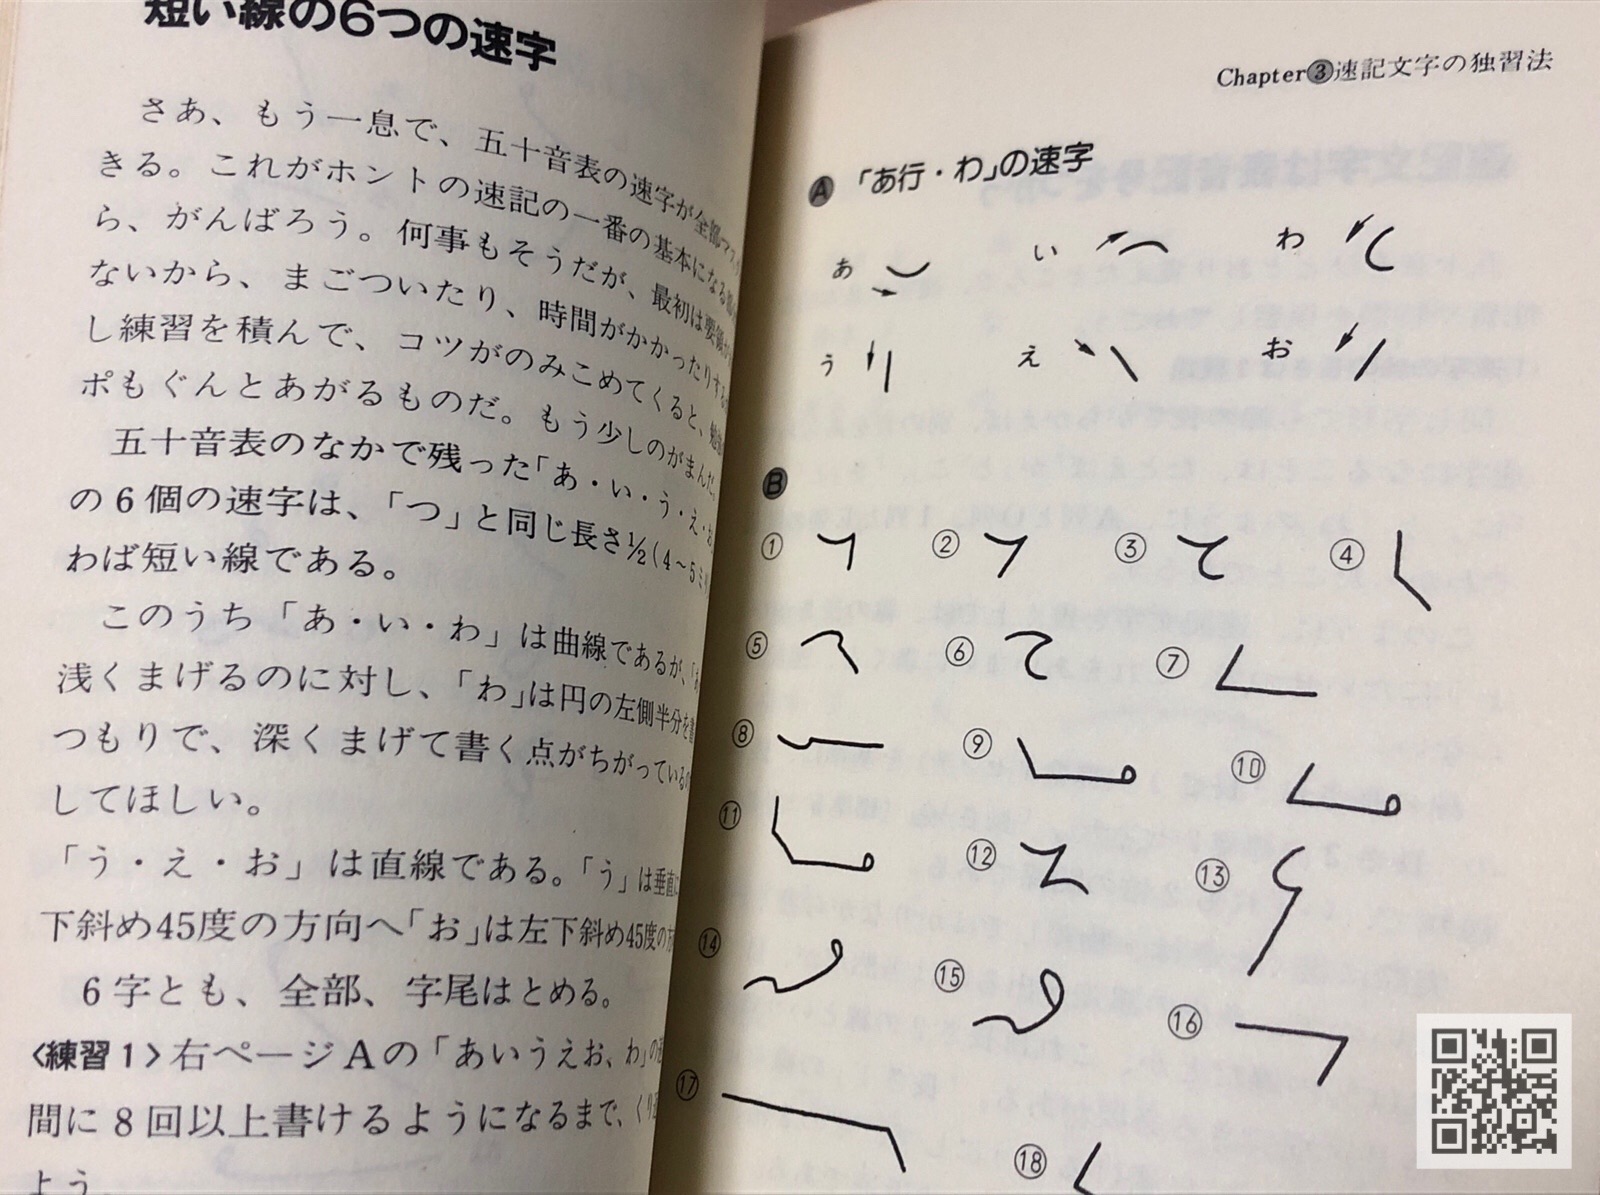 短い線の6つの速字
さあ、もう一息で、五十音表の速字が全部マス
きる。これがホントの速記の一番の基本になる
ら、がんばろう。何事もそうだが、最初は要領が
ないから、まごついたり、時間がかかったりする
し練習を積んで、コツがのみこめてくると、
ポもぐんとあがるものだ。もう少しのがまんだ。
五十音表のなかで残った「あ・い・う・え・お
の6個の速字は、「つ」と同じ長さ½(4〜5ミリ
わば短い線である。
このうち「あ・い・わ」は曲線であるが、
浅くまげるのに対し、「わ」は円の左側半分を書
つもりで、深くまげて書く点がちがっているの
してほしい。
「う・え・お」は直線である。「う」は垂直に
下斜め45度の方向へ「お」は左下斜め45度の方
6字とも、全部、字尾はとめる。
〈練習1〉右ページAの「あいうえお、わ」の
間に8回以上書けるようになるまで、くり返
よう。
Chapter③速記文字の独習法
Ⓐ「あ行・わ」の速字
あ い わ
う え お
Ⓑ
① ② ③ ④
⑤ ⑥ ⑦
⑧ ⑨ ⑩
⑪ ⑫ ⑬
⑭ ⑮ ⑯
⑰ ⑱